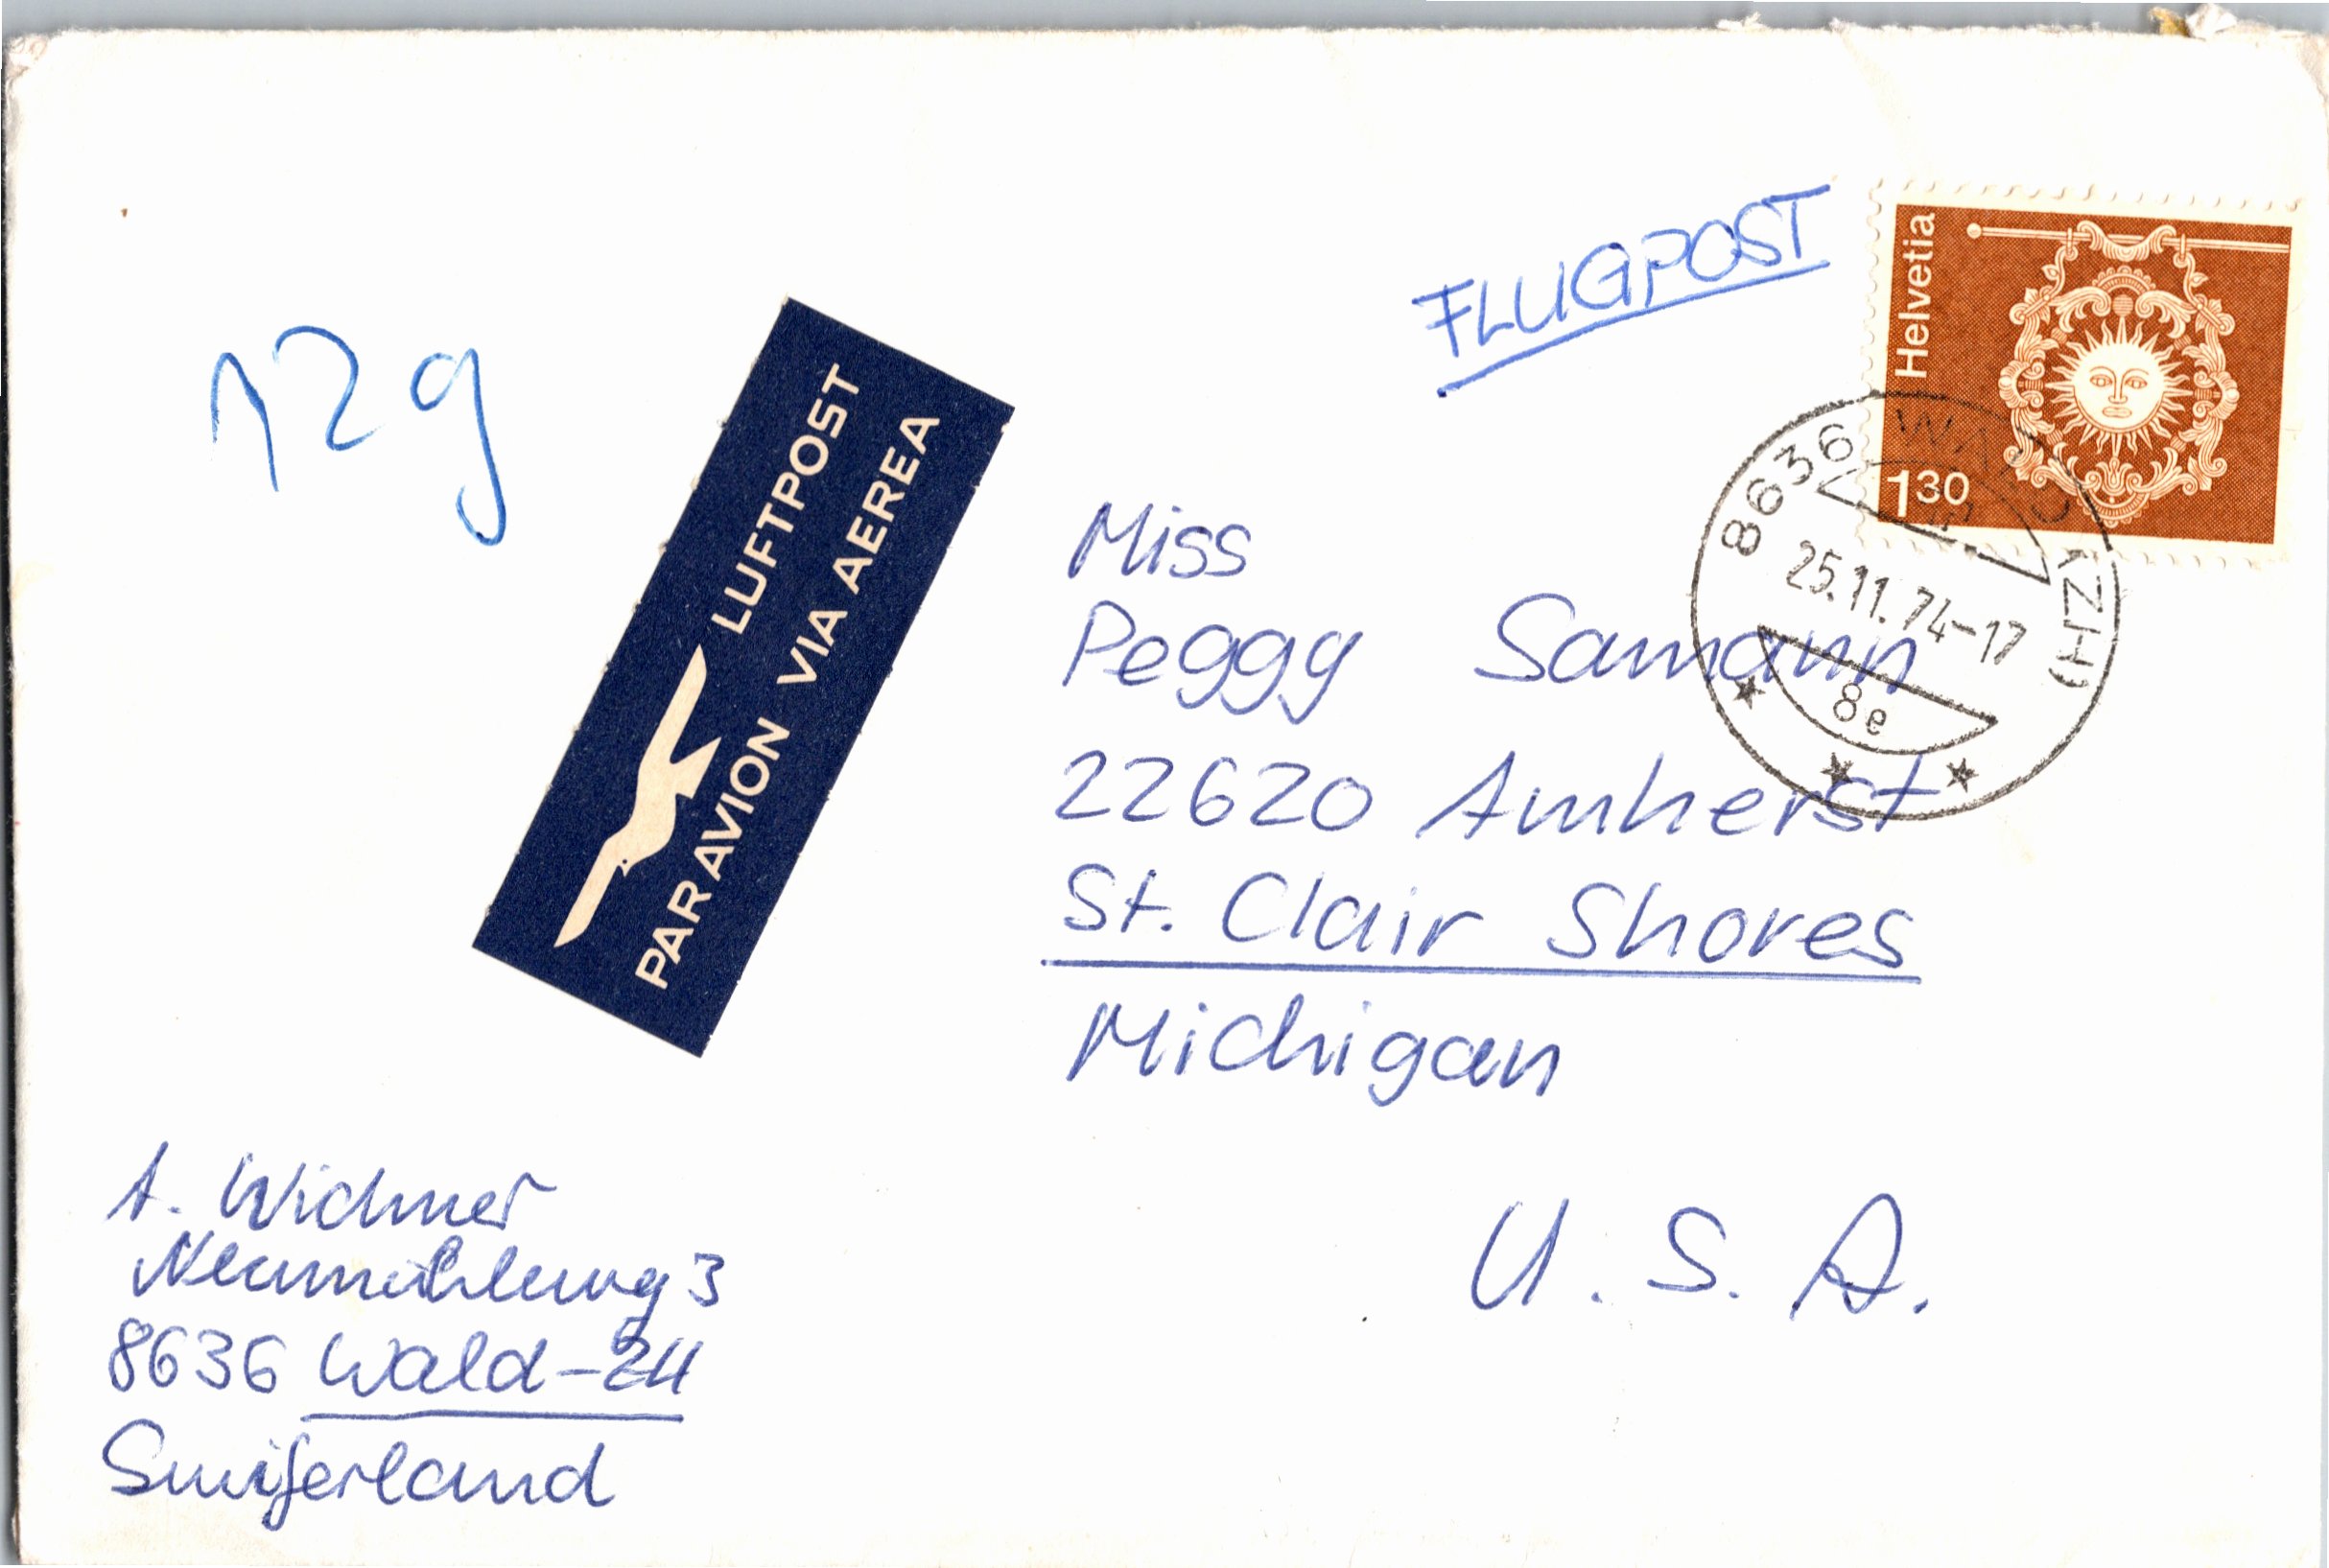 FLUGPOST
Helvetia
130
12g
LUFTPOST
PAR AVION VIA AEREA
8636 WALD (ZH)
25.11.74-17
8e
Miss
Peggy Samann
22620 Amherst
St. Clair Shores
Michigan
U.S.A.
A. Widmer
Neumühleweg 3
8636 Wald-ZH
Switzerland